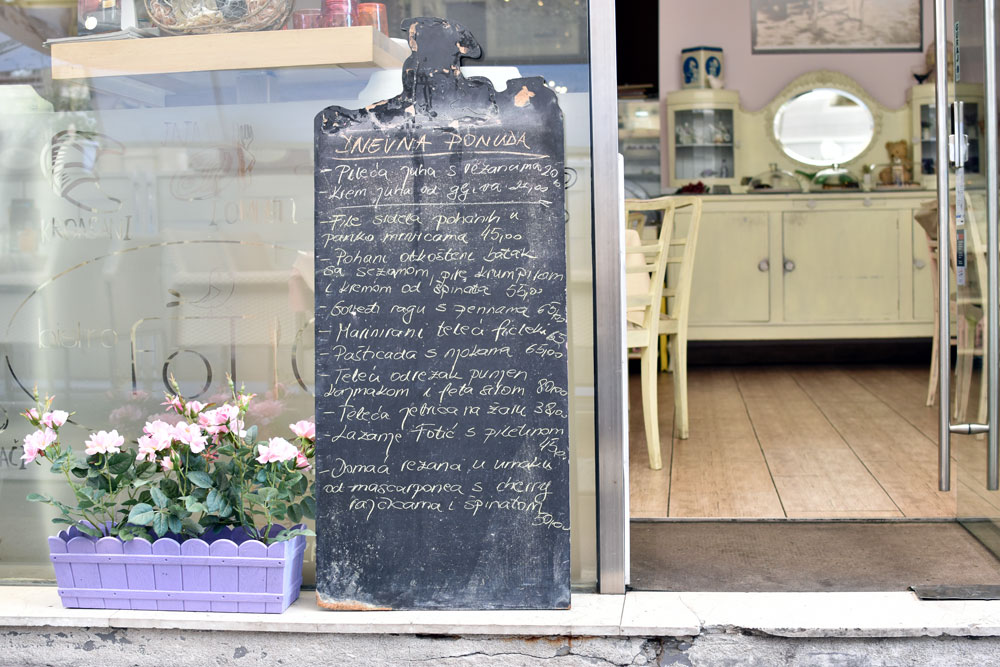 DNEVNA PONUDA
- Pileća juha s rezancima 20,00
- Krem juha od gljiva 22,00
- File smuđa pohanih u
panko mrvicama 45,00
- Pohani otkošteni batak
sa sezamom, pire krumpirom
i kremom od špinata 55,00
- Goveđi ragu s pennama 65,00
- Marinirani teleći file 65
- Pašticada s njokama 65,00
- Teleći odrezak punjen
kajmakom i feta sirom 80,00
- Teleća jetrica na žaru 38,00
- Lazanje Fotić s piletinom
45,00
- Domaća rezana u umaku
od mascarponea s cherry
rajčicama i špinatom
50,00
bistro
FOTIĆ